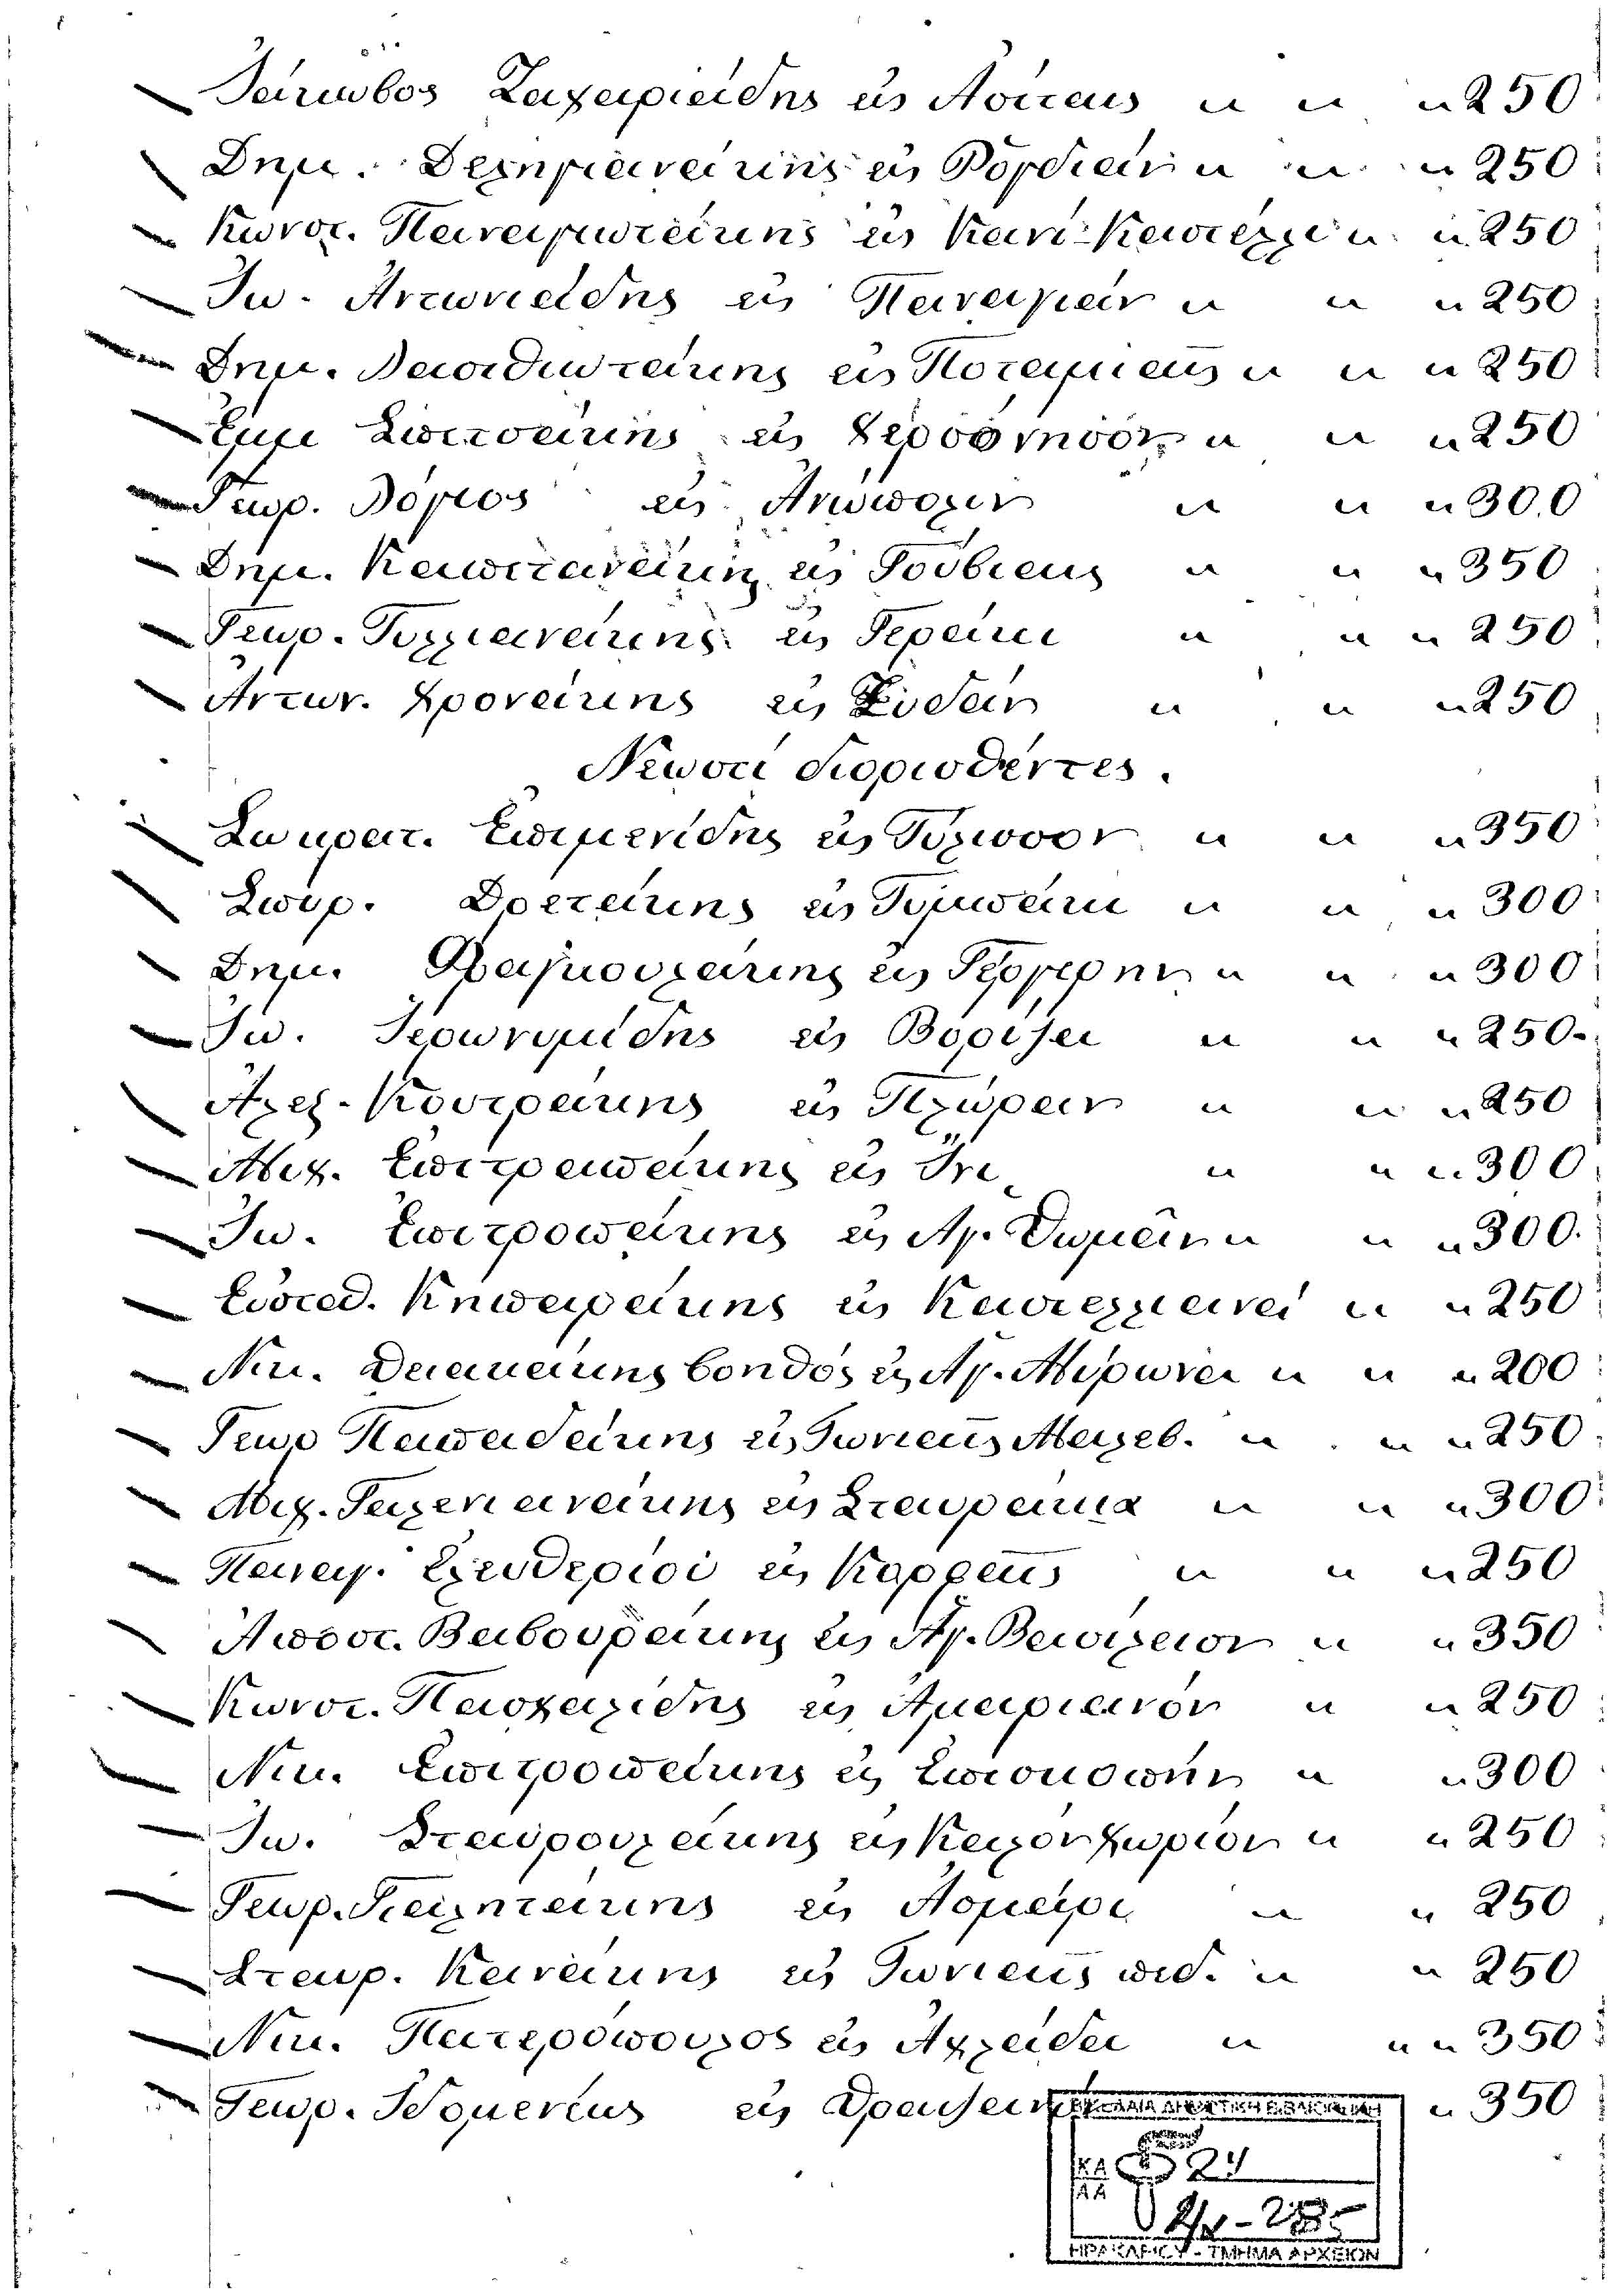 Ἰάκωβος Ζαχαριάδης εἰς Λούτας " " " 250
Δημ. Δεληγιαννάκης εἰς Ῥογδιάν " " " 250
Κωνστ. Παναγιωτάκης εἰς Καινʹ Καστέλλι " " 250
Ἰω. Ἀντωνιάδης εἰς Παναγιάν " " " 250
Δημ. Βασιλάκης εἰς Ποταμιαῖς " " " 250
Ἐμμ εἰς " " " 250
Γεωρ. Βόγιος εἰς Ἀνώπολιν " " " 300
Δημ. Καπετανάκης εἰς Γούβιαις " " " 350
Γεωρ. Γυλλιανάκης εἰς Γεράκι " " " 250
Ἀντων. Χρονάκης εἰς Ξιδᾶν " " " 250
Νεωστί διορισθέντες.
Σωκρατ. Ἐπιμενίδης εἰς Τύλισσον " " " 350
Σπυρ. Δρεττάκης εἰς Τυμπάκι " " " 300
Δημ. εἰς Γέργερην " " " 300
Ἰω. Ἱερωνυμίδης εἰς Βορίζα " " " 250
Ἀλεξ. Κουτράκης εἰς Πλώραν " " " 250
Μιχ. Ἐπιτροπάκης εἰς Ἴνι " " " 300
Ἰω. Ἐπιτροπάκης εἰς Ἁγ. Θωμᾶν " " " 300.
Εὐσταθ. Κηπαράκης εἰς Καστελλιανά " " 250
Νικ. Δασκαλάκης βοηθός εἰς Ἁγ. Μύρωνα " " " 200
Γεωρ Παπαδάκης εἰς Γωνιαῖς Μαλεβ. " " " 250
Μιχ. Γαλενιανάκης εἰς Σταυράκια " " " 300
Παναγ. Ἐλευθερίου εἰς Κορφαῖς " " " 250
Ἀποστ. Βαβουράκης εἰς Ἁγ. Βασίλειον " " 350
Κωνστ. Πασχαλίδης εἰς Ἀμαριανόν " " 250
Νικ. Ἐπιτροπάκης εἰς Ἐπισκοπήν " " 300
Ἰω. Σταυρουλάκης εἰς Καλόν Χωρίον " " 250
Γεωρ. Γιαλητάκης εἰς Λομάρι " " 250
Σταυρ. Κανάκης εἰς Γωνιαῖς πεδ. " " 250
Νικ. Πατερόπουλος εἰς Ἀχλάδα " " " 350
Γεωρ. εἰς " 350
ΒΙΚΕΛΑΙΑ ΔΗΜΟΤΙΚΗ ΒΙΒΛΙΟΘΗΚΗ
ΚΑ 24
ΑΑ
ΗΡΑΚΛΕΙΟΥ - ΤΜΗΜΑ ΑΡΧΕΙΩΝ